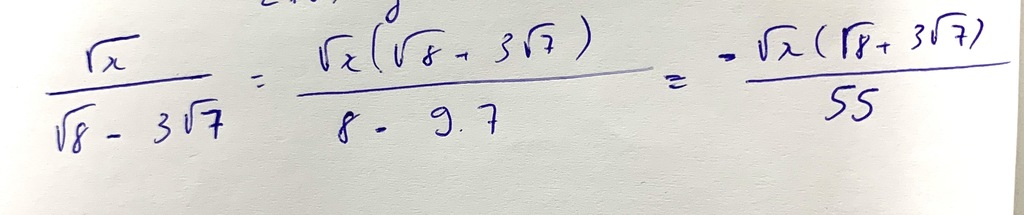 √x / (√8 - 3√7) = √x(√8 + 3√7) / (8 - 9.7) = - √x(√8 + 3√7) / 55